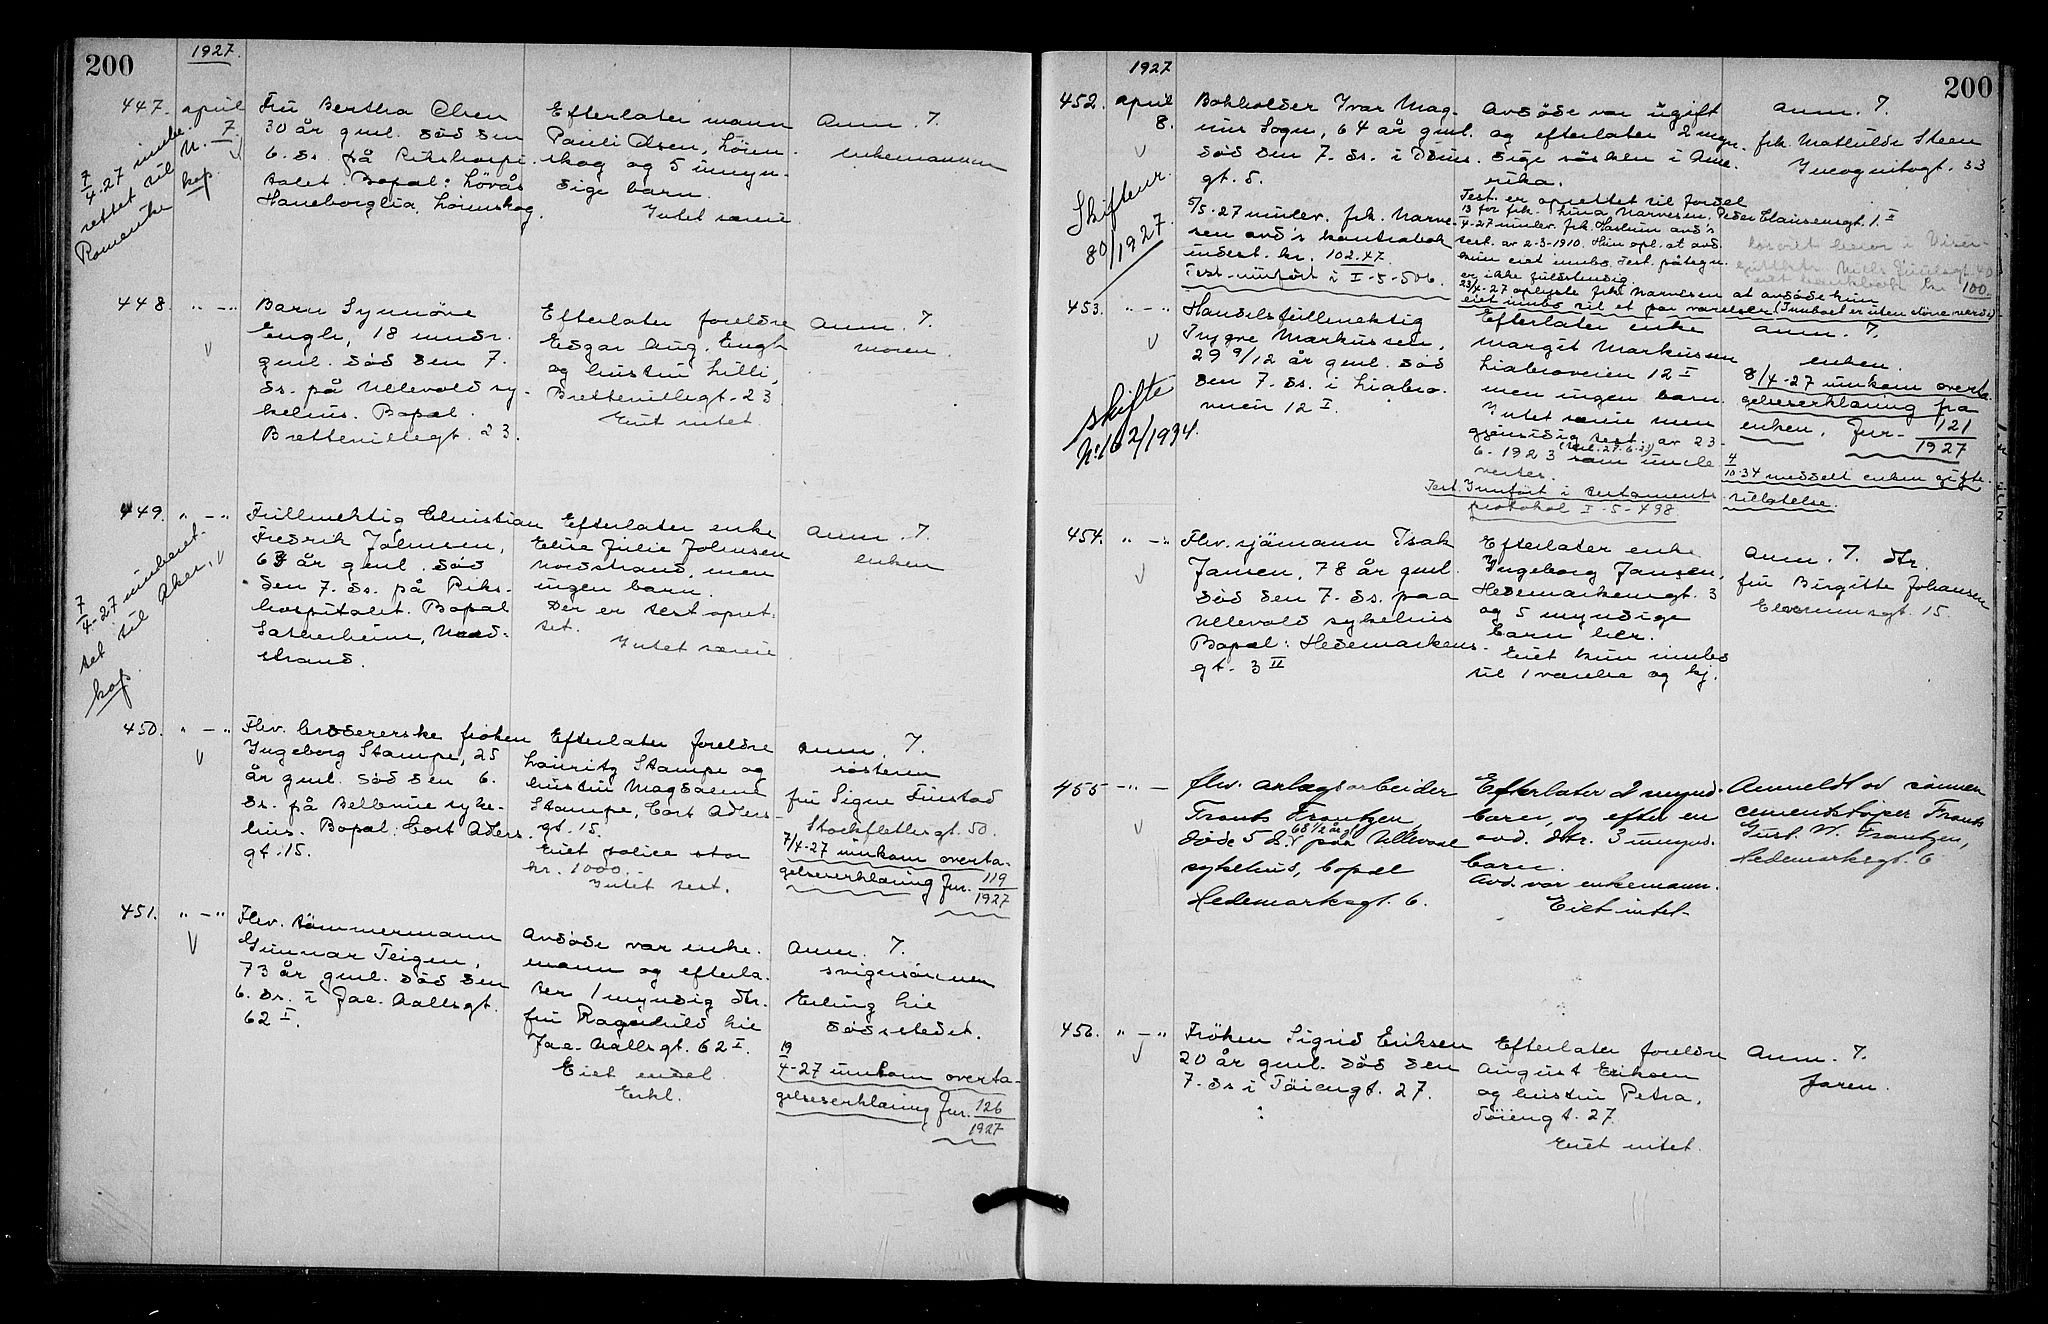 200
1927
447. april 7.
Fru Bertha Olsen
30 år gml. död den
6. ds. på Rikshospi-
talet. Bopal: Lövås
Haneborglia, Lörenskog.
Efterlater mann
Pauli Olsen, Lören-
skog og 5 umyn-
dige barn.
Intet særeie
Anm. 7.
enkemannen
7/4-27 innbe-
rettet til N.
Romerike
kop.
448. " — "
Barn Synnöve
Engh, 18 mndr.
gml. död den 7.
ds. på Ullevold sy-
kehus. Bopal.
Brettevillegt. 23.
Efterlater foreldre
Edgar Aug. Engh
og hustru Lilli,
Brettevillegt. 23
Eiet intet.
Anm. 7.
moren.
449. " — "
Fullmektig Christian
Fredrik Johnsen,
67 år gml. död
den 7. ds. på Riks-
hospitalet. Bopal
Sæterheim, Nord-
strand.
Efterlater enke
Elise Julie Johnsen
Nordstrand, men
ingen barn.
Der er test. opret-
tet.
Intet særeie
Anm. 7.
enken
7/4-27 innberet-
tet til Aker.
kop.
450. " — "
Fhv. brodererske fröken
Ingeborg Stampe, 25
år gml. död den 6.
ds. på Bellevue syke-
hus. Bopal: Cort Adlers
gt. 15.
Efterlater foreldre
Lauritz Stampe og
hustru Magdalene
Stampe, Cort Adlers-
gt. 15.
Eiet police stor
kr. 1000.-
Intet test.
Anm. 7.
sösteren
fru Signe Finstad
Stockflethsgt. 50.
7/4-27 innkom overta-
gelseserklæring Jnr. 119/1927
451. " — "
Fhv. tömmermann
Gunnar Teigen,
73 år gml. död den
6. ds. i Jac. Aallsgt.
62 I.
Avdöde var enke-
mann og efterla-
ter 1 myndig dtr.
fru Ragnhild Lie
Jac. Aallsgt. 62 I.
Eiet endel.
Erkl.
Anm. 7.
svigersönnen
Erling Lie
dödsstedet.
19/4-27 innkom overta-
gelseserklæring Jnr. 126/1927
200
1927
452. april 8.
Bokholder Ivar Mag-
nus Sogn, 64 år gml.
död den 7. ds. i
gt. 5.
5/5-27 innlev. frk. Narve-
sen avd's kontrabok
indest. kr. 102.47.
Test. innfört i I-5-506.
Avdöde var ugift
og efterlater 2 myn-
dige sösken i Ame-
rika.
Test. er oprettet til fordel
for frk. Lina Narvesen, Peder Clausensgt. 1 I
13/4-27 innlev. frk. Hastum avd's
test. av 2-3-1910. Hun opl. at avd.
kun eiet innbo. Test. påtegn.
er ikke fuldstendig.
23/4-27 oplyste frk. Narvesen at avdöde kun
eiet innbo til et par værelser (Innboet er uten större verdi)
Anm. 7.
frk. Mathilde Steen
Incognitogt. 33
100
Skiftenr.
80/1927
453. " — "
Handelsfullmektig
Trygve Markussen,
29 9/12 år gml. död
den 7. ds. i Liabro-
veien 12 I.
Efterlater enke
Margit Markussen
Liabroveien 12 I
men ingen barn.
Intet særeie men
gjensidig test. av 23-
6-1923 som innle-
veres.
Test. Innfört i testaments-
protokol I-5-498.
Anm. 7.
enken.
8/4-27 innkom overta-
gelseserklæring fra
enken. Jnr. 121/1927
4/10-34 meddelt enken gifte-
tillatelse.
Skifte
Nr. 62/1934.
454. " — "
Fhv. sjömann Isak
Jansen, 78 år gml.
död den 7. ds. paa
Ullevold sykehus
Bopæl: Hedemarkens-
gt. 3 II
Efterlater enke
Ingeborg Jansen,
Hedemarkensgt. 3
og 5 myndige
barn her.
Eiet kun innbo
til 1 værelse og kj.
Anm. 7. dtr.
fru Birgitte Johansen
Elverumsgt. 15.
455 — " —
fhv. anlegsarbeider
Frants Frantzen,
68 1/2 år gl
döde 5 ds. paa Ullevaal
sykehus, bopæl
Hedemarksgt. 6.
Efterlater 2 mynd.
barn, og efter en
avd. dtr. 3 umynd.
barn.
Avd. var enkemann.
Eiet intet.
Anmeldt av sönnen
cementstöper Frants
Gust. W. Frantzen,
Hedemarksgt. 6
456. " — "
Fröken Sigrid Eriksen
20 år gml. död den
7. ds i Töiengt. 27.
Efterlater foreldre
August Eriksen
og hustru Petra,
Töiengt. 27.
Eiet intet.
Anm. 7.
faren.